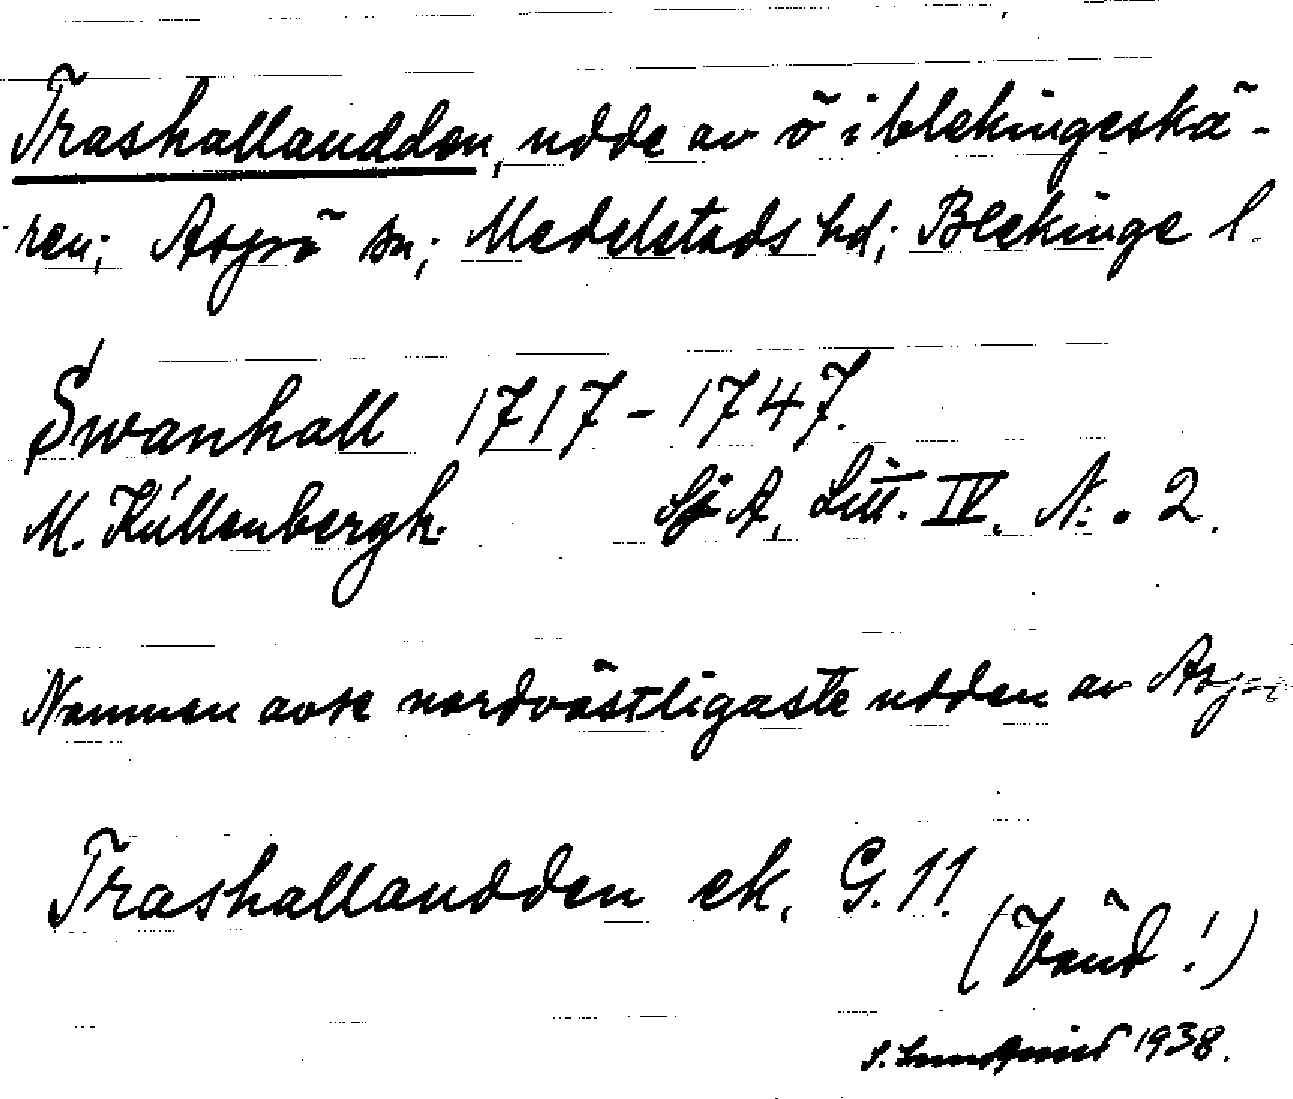 Trashallaudden, udde av ö i blekingeskä-
ren; Aspö sn; Medelstads hd; Blekinge l.
Swanhall 1717-1747.
M. Kúllenbergh. Sjö A, Litt. IV. N:o 2.
Namnen avse nordvästligaste udden av Aspö
Trashallaudden ek. G. 11.
(Vänd!)
S. Lundqvist 1938.